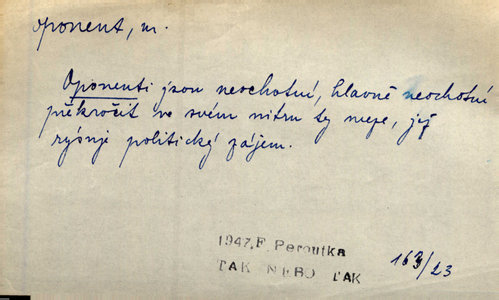 oponent, m.
Oponenti jsou neochotní, hlavně neochotní
překročit ve svém nitru ty meze, jež
rýsuje politický zájem.
1947, F. Peroutka
TAK NEBO TAK
163/23